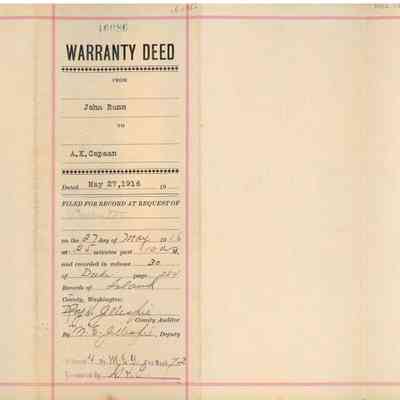 16086
WARRANTY DEED
FROM
John Bunn
TO
A.K.Capaan
Dated May 27,1916 19
FILED FOR RECORD AT REQUEST OF
on the 27 day of May 1916
at 25 minutes past 10 a
and recorded in volume 30
of Deeds page 284
Records of Island
County, Washington.
Gillespie
County Auditor
By Gillespie, Deputy
4